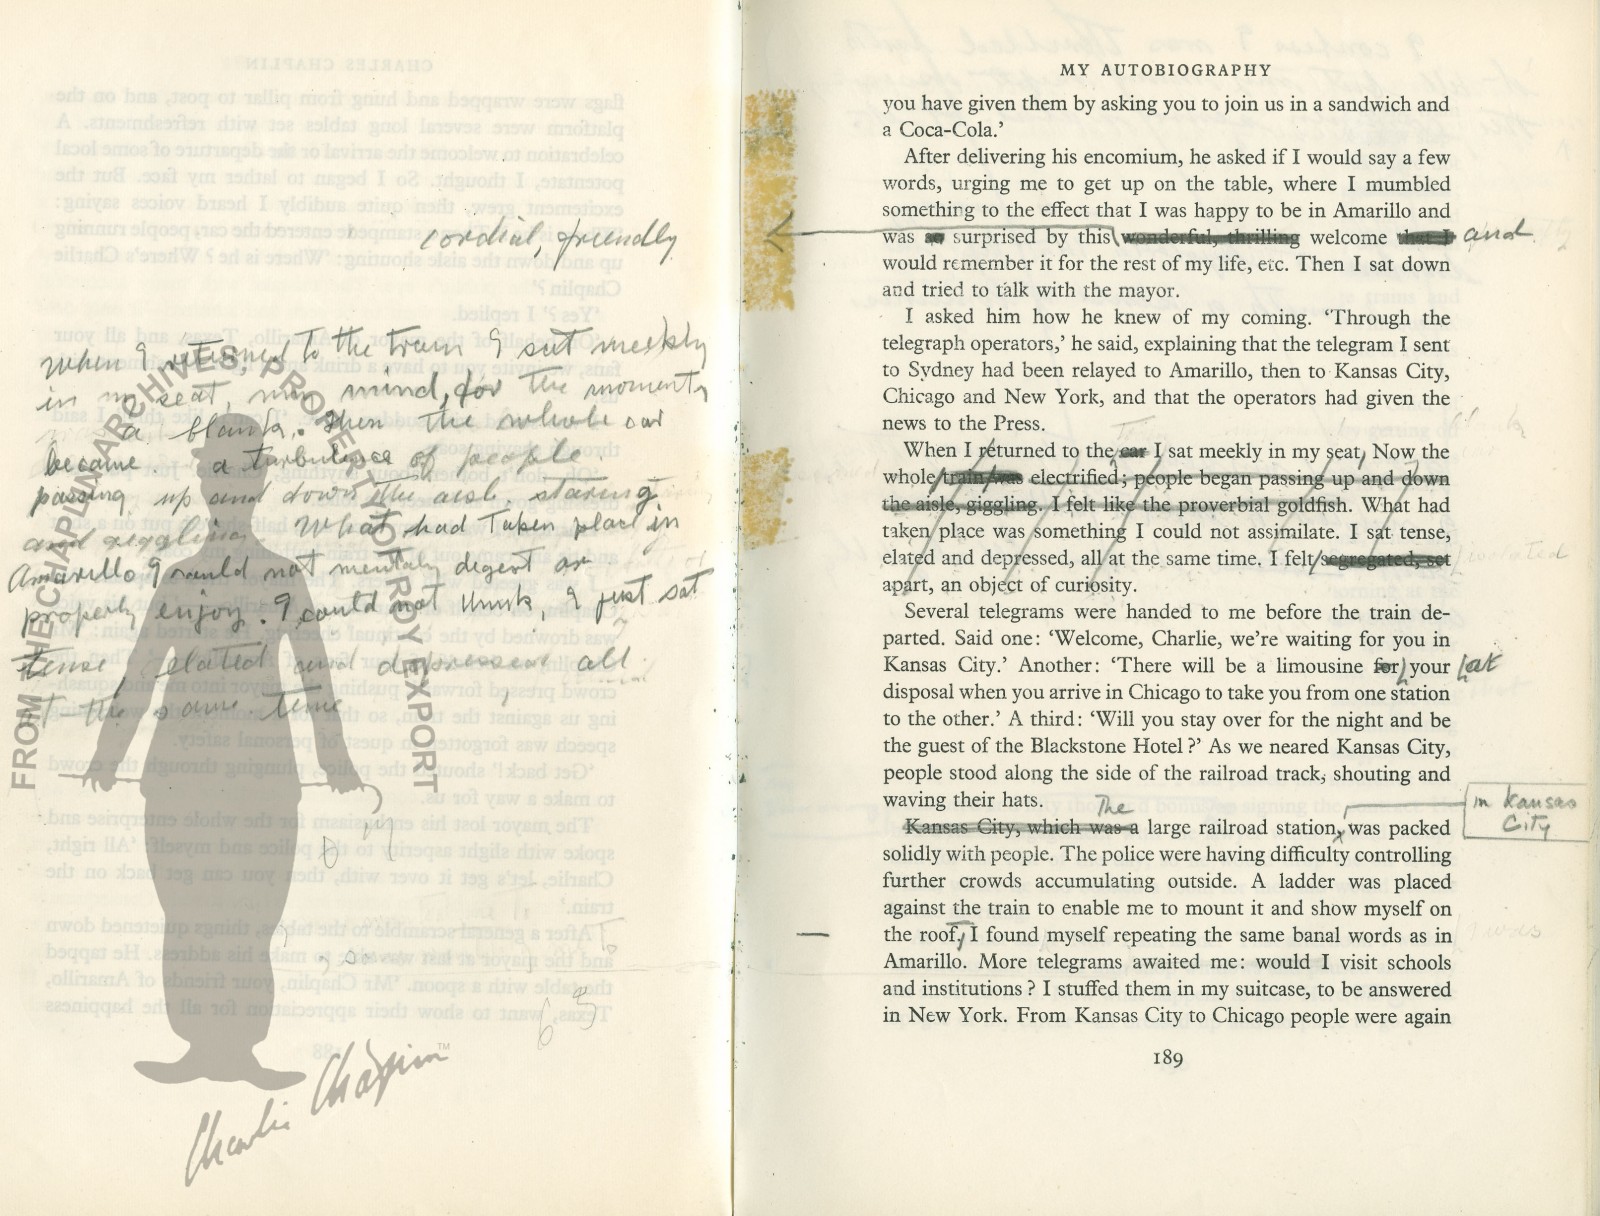 cordial, friendly
When I returned to the train I sat meekly
in my seat, my mind, for the moment,
a blank. Then the whole car
became a turbulence of people
passing up and down the aisle. staring
and giggling What had taken place in
Amarillo I could not mentaly digest or
properly enjoy. I could not think, I just sat
tense elated and depressed all
at the same time
FROM THE CHAPLIN ARCHIVES, PROPERTY OF ROY EXPORT
Charlie Chaplin™
MY AUTOBIOGRAPHY
you have given them by asking you to join us in a sandwich and
a Coca-Cola.’
After delivering his encomium, he asked if I would say a few
words, urging me to get up on the table, where I mumbled
something to the effect that I was happy to be in Amarillo and
was so surprised by this wonderful, thrilling welcome that I and
would remember it for the rest of my life, etc. Then I sat down
and tried to talk with the mayor.
I asked him how he knew of my coming. ‘Through the
telegraph operators,’ he said, explaining that the telegram I sent
to Sydney had been relayed to Amarillo, then to Kansas City,
Chicago and New York, and that the operators had given the
news to the Press.
When I returned to the car I sat meekly in my seat. Now the
whole train was electrified; people began passing up and down
the aisle, giggling. I felt like the proverbial goldfish. What had
taken place was something I could not assimilate. I sat tense,
elated and depressed, all at the same time. I felt segregated, set isolated
apart, an object of curiosity.
Several telegrams were handed to me before the train de-
parted. Said one: ‘Welcome, Charlie, we’re waiting for you in
Kansas City.’ Another: ‘There will be a limousine for your at
disposal when you arrive in Chicago to take you from one station
to the other.’ A third: ‘Will you stay over for the night and be
the guest of the Blackstone Hotel?’ As we neared Kansas City,
people stood along the side of the railroad track, shouting and
waving their hats.
The
Kansas City, which was a large railroad station, was packed
in Kansas
City
solidly with people. The police were having difficulty controlling
further crowds accumulating outside. A ladder was placed
against the train to enable me to mount it and show myself on
the roof, I found myself repeating the same banal words as in
Amarillo. More telegrams awaited me: would I visit schools
and institutions? I stuffed them in my suitcase, to be answered
in New York. From Kansas City to Chicago people were again
189